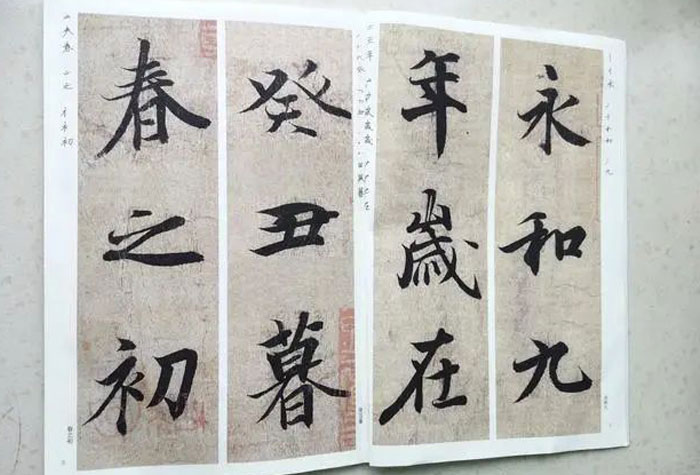 永和九
年歲在
癸丑暮
春之初